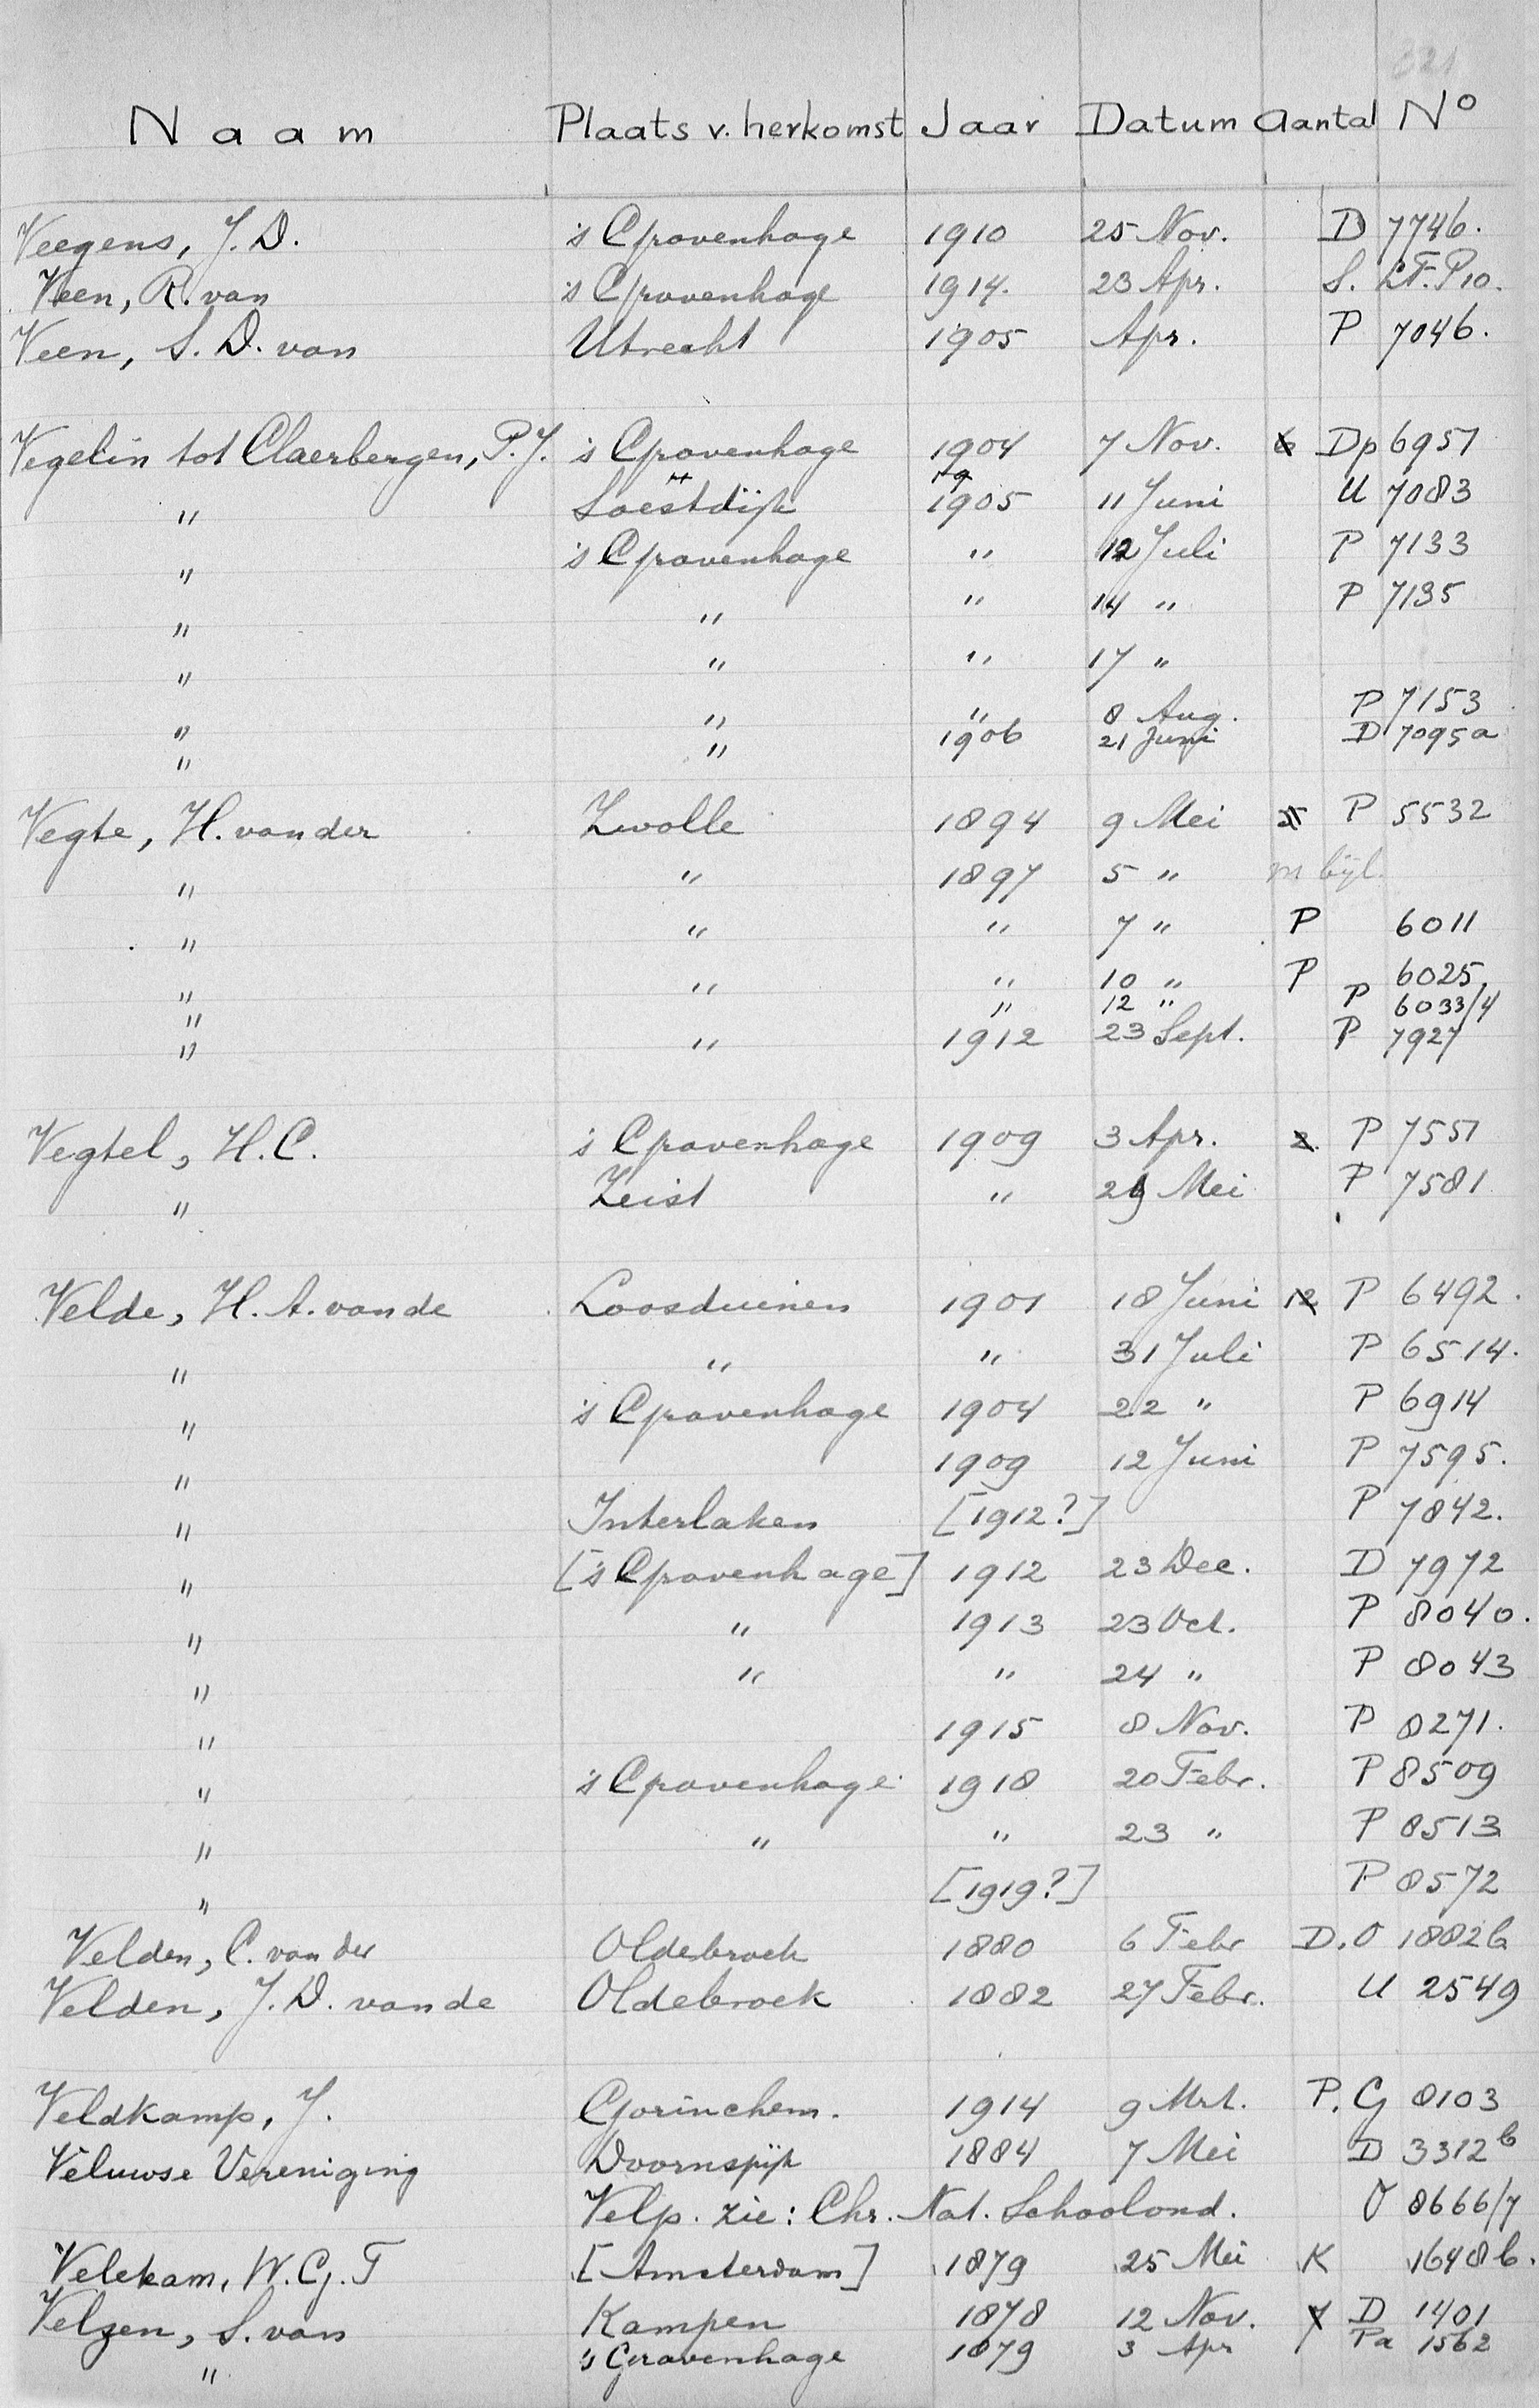 321
Naam Plaats v. herkomst Jaar Datum Aantal No
Veegens, J.D. 's Gravenhage 1910 25 Nov. D 7746.
Veen, R. van 's Gravenhage 1914. 23 Apr. S. LF. P10.
Veen, S.D. van Utrecht 1905 Apr. P 7046.
Vegelin tot Claerbergen, P.J. 's Gravenhage 1904 7 Nov. 6 Dp 6951
" Soestdijk 1905 11 Juni U 7083
" 's Gravenhage " 12 Juli P 7133
" " " 14 " P 7135
" " " 17 "
" " " 8 Aug. P 7153
" " 1906 21 Juni D 7095a
Vegte, H. van der Zwolle 1894 9 Mei P 5532
" " 1897 5 " m bijl.
" " " 7 " P 6011
" " " 10 " P 6025
" " 12 " P 6033/4
" " 1912 23 Sept. P 7927
Vegtel, H.C. 's Gravenhage 1909 3 Apr. 2. P 7551
" Zeist " 29 Mei P 7581
Velde, H.A. van de Loosduinen 1901 18 Juni 12 P 6492.
" " " 31 Juli P 6514.
" 's Gravenhage 1904 22 " P 6914
" 1909 12 Juni P 7595.
" Interlaken [1912?] P 7842.
" ['s Gravenhage] 1912 23 Dec. D 7972
" " 1913 23 Oct. P 8040.
" " " 24 " P 8043
" 1915 8 Nov. P 8271.
" 's Gravenhage 1918 20 Febr. P 8509
" " " 23 " P 8513
" [1919?] P 8572
Velden, C. van der Oldebroek 1880 6 Febr D.O 1882b
Velden, J.D. van de Oldebroek 1882 27 Febr. U 2549
Veldkamp, J. Gorinchem. 1914 9 Mrt. P.G 8103
Veluwse Vereniging Doornspijk 1884 7 Mei D 3312b
Velp. zie: Chr. Nat. Schoolond. O 8666/7
Veltkam, W.G.F [Amsterdam] 1879 25 Mei K 1648b.
Velzen, S. van Kampen 1878 12 Nov. 7 D 1401
" 's Gravenhage 1879 3 Apr Pa 1562